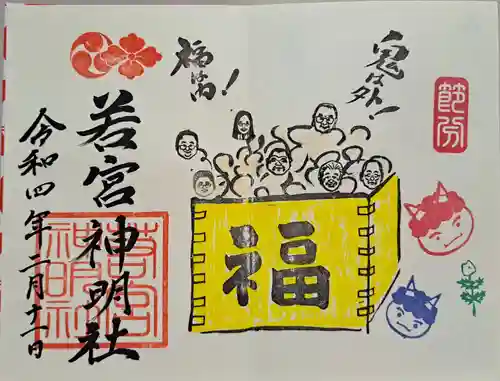 鬼は外!
節分
福は内!
福
若宮神明社
令和四年二月十一日
若宮
神明社